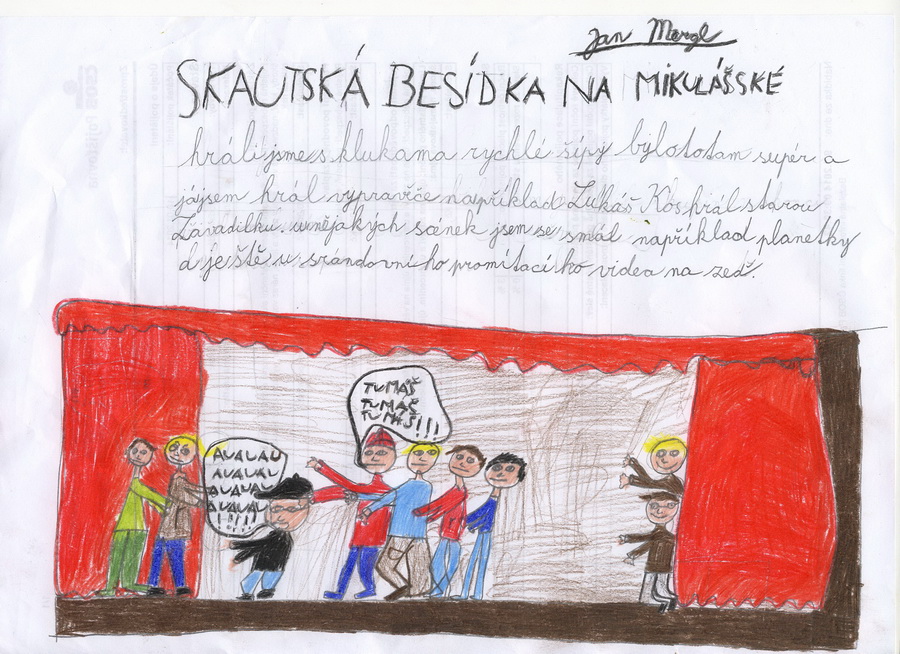 Jan Mergl
SKAUTSKÁ BESÍDKA NA MIKULÁŠSKÉ
hráli jsme s klukama rychlé šípy bylo to tam supér a
jájsem hrál vypravěče například Lukáš Kos hrál starou
Zavadilku. u nějakých scének jsem se smál například planetky
a ještě u srandovního promítacího videa na zeď.
TU MÁŠ
TU MÁŠ
TU MÁŠ!!!
AUAUAU
AUAUAU
AUAUAU
AUAUAU
!!!!!